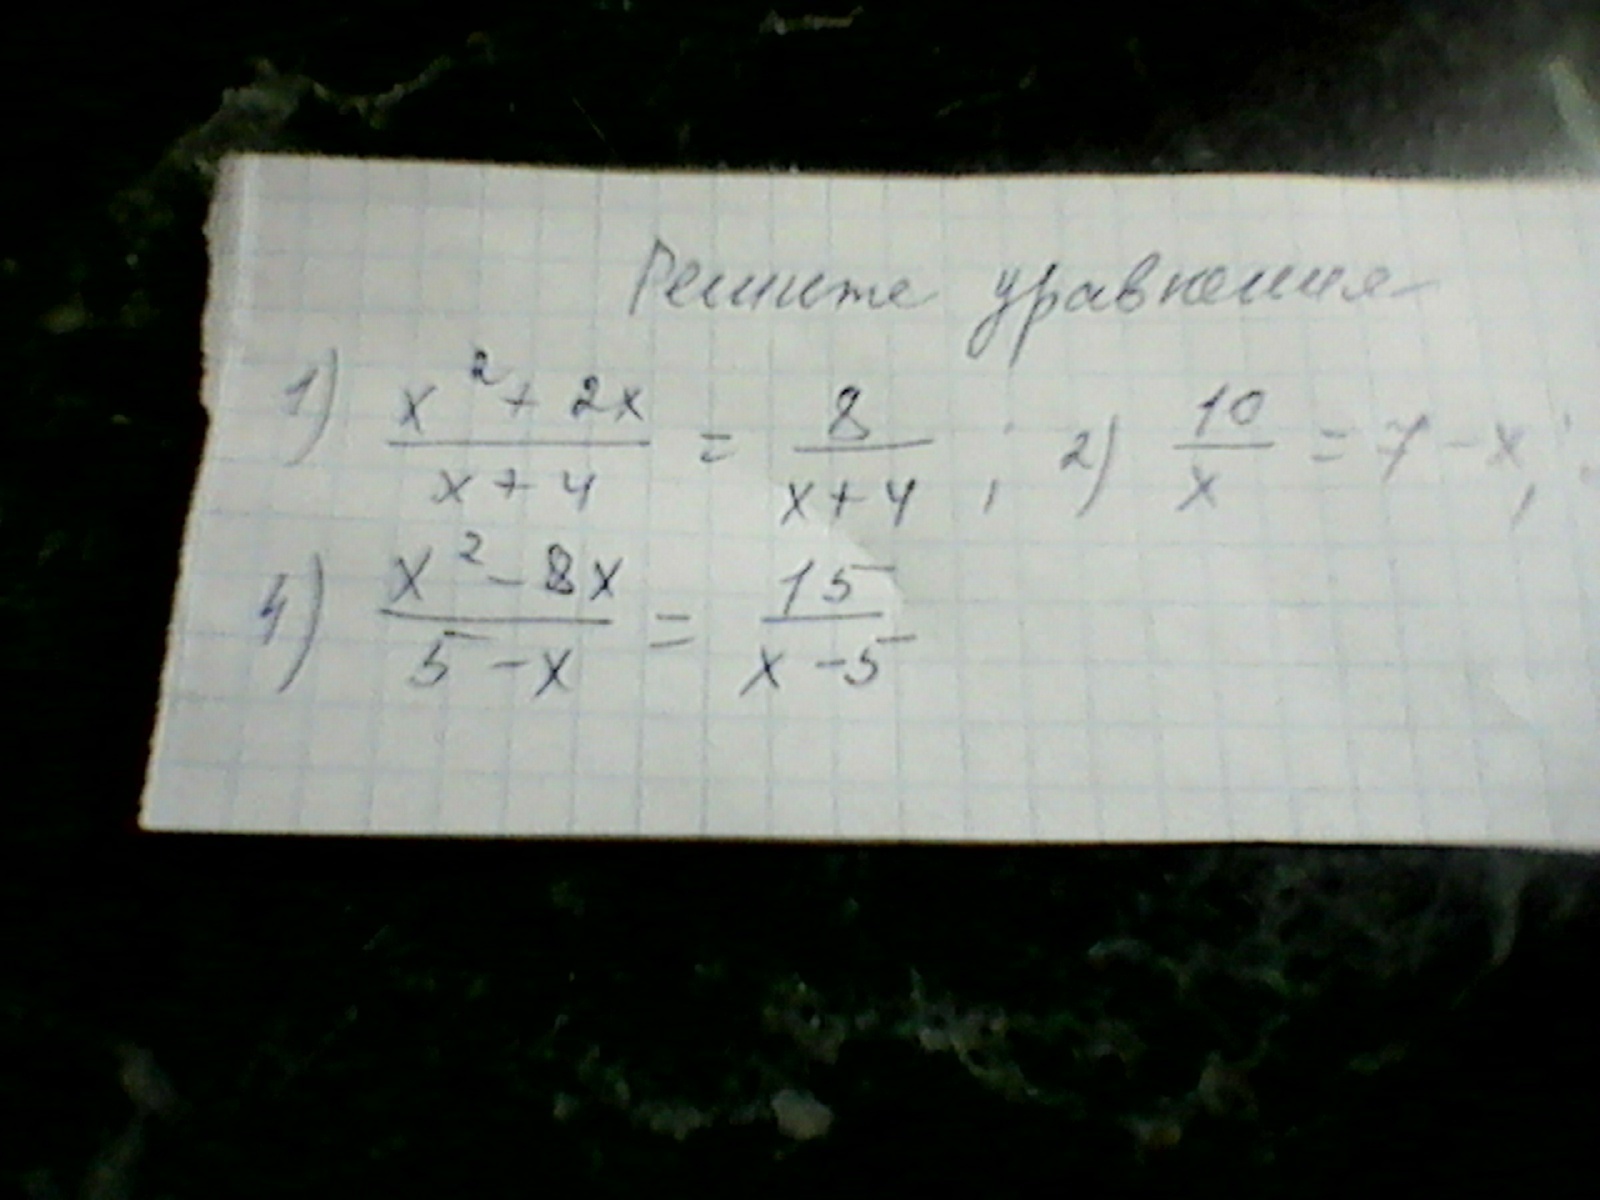 Решите уравнения
1) (x² + 2x)/(x + 4) = 8/(x + 4) ; 2) 10/x = 7 - x ;
4) (x² - 8x)/(5 - x) = 15/(x - 5)